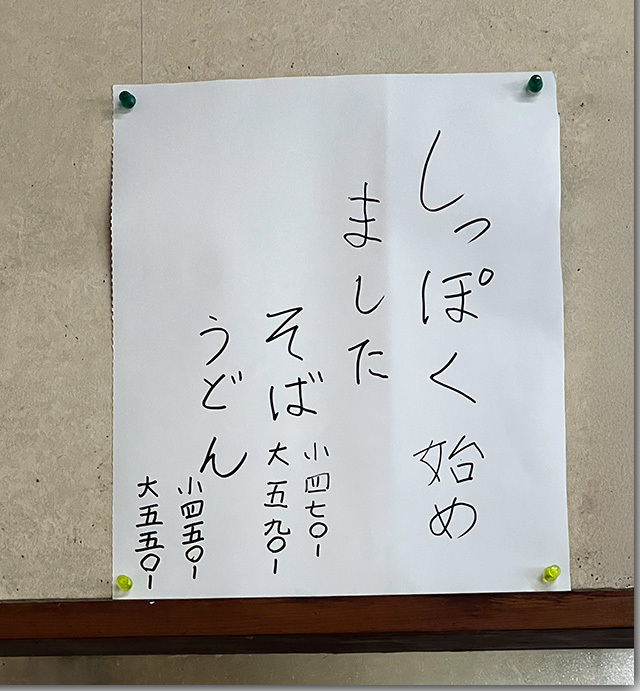 しっぽく始め
ました
そば
小四七〇-
大五九〇-
うどん
小四五〇-
大五五〇-